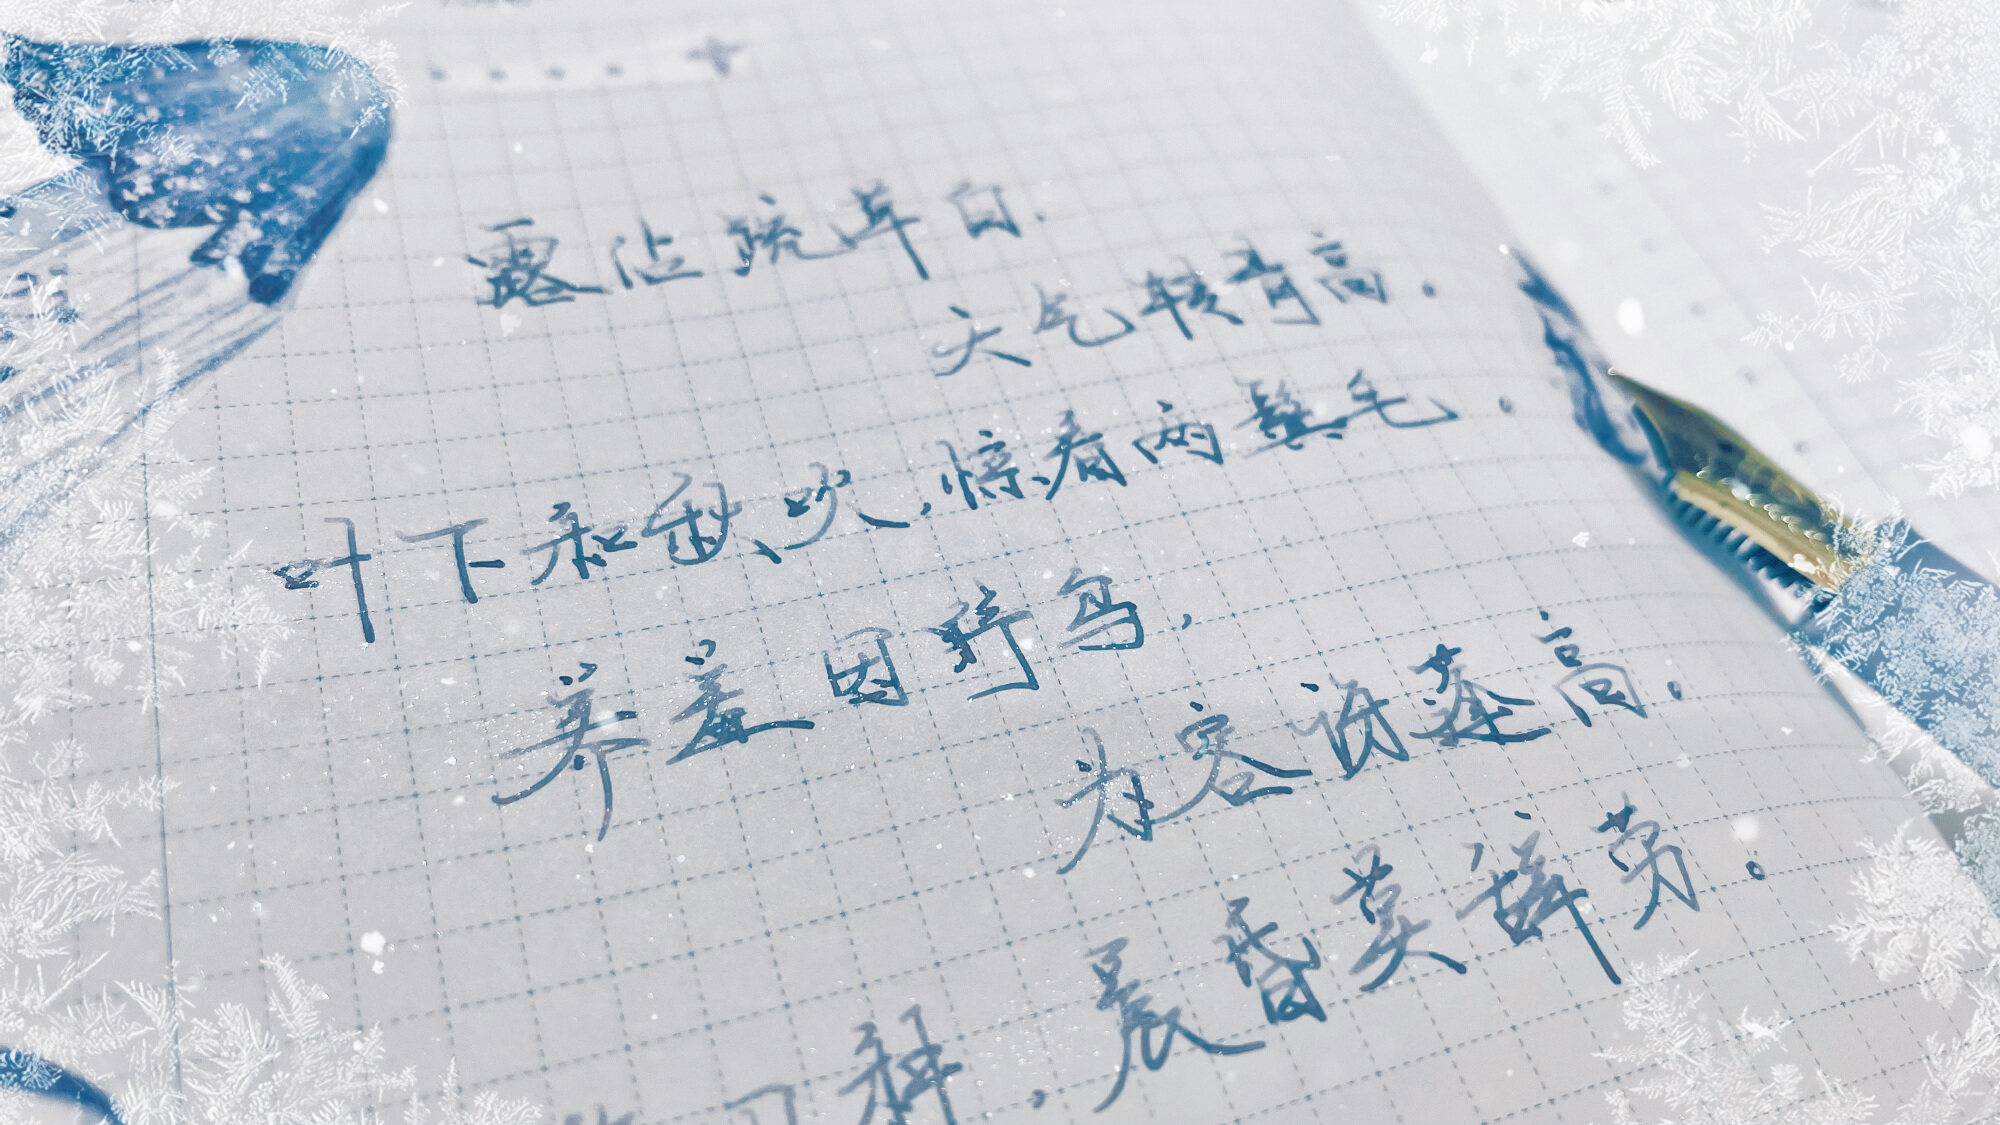 露沾疏草白,
天气转青高。
叶下和秋吹,惊看两鬓毛。
养羞因野鸟,
为客讶蓬高。
种,晨昏莫辞劳。